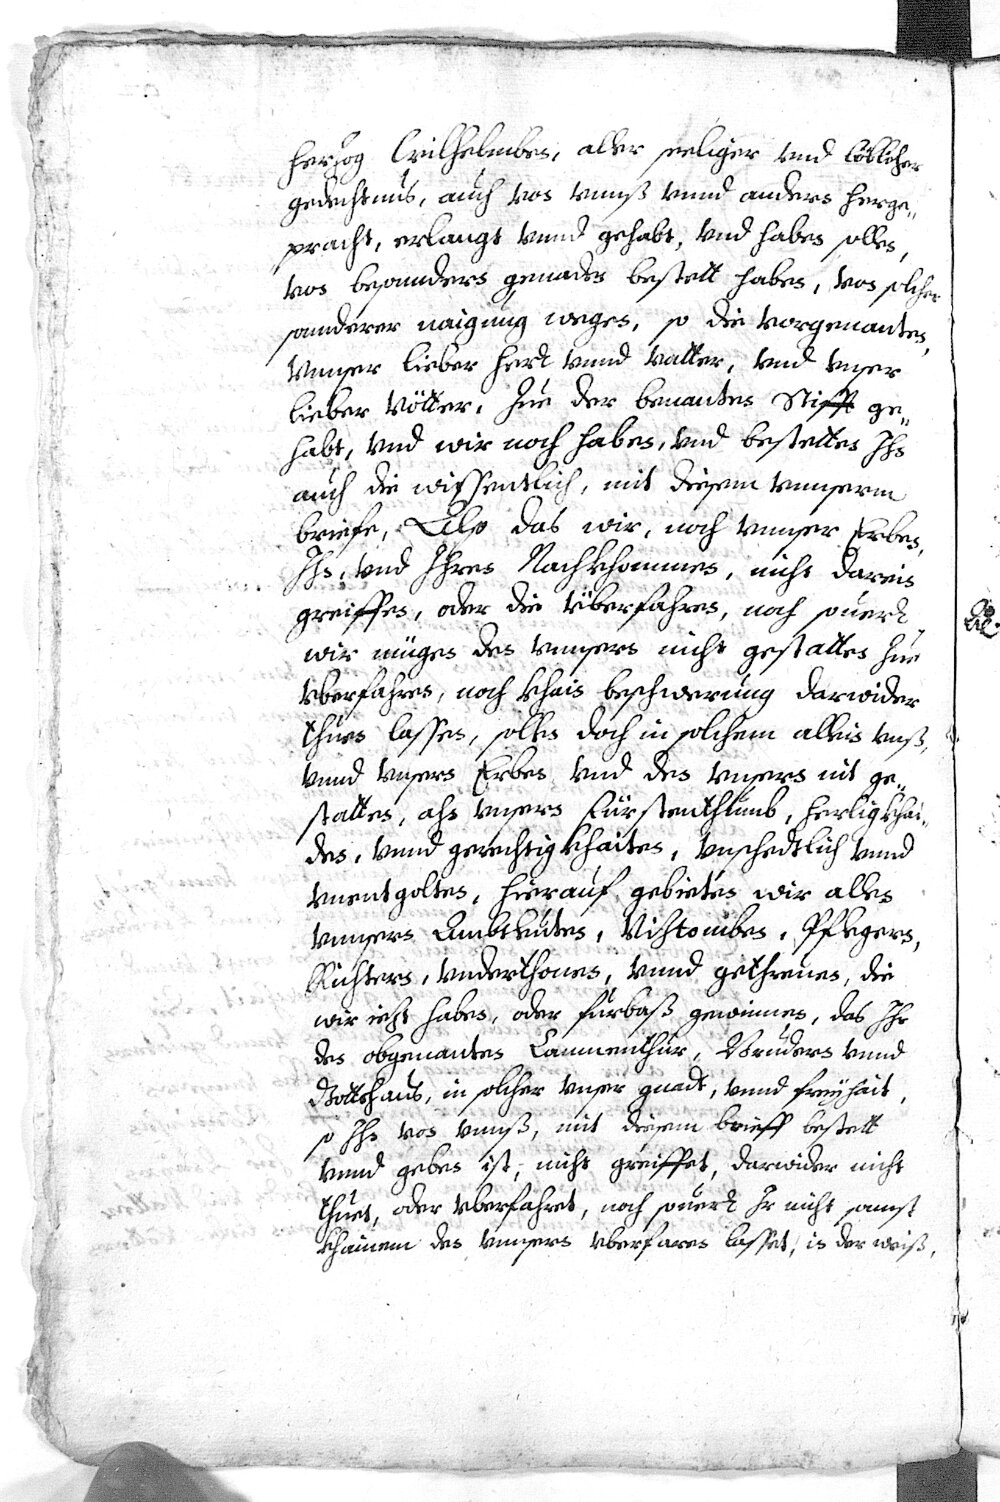 herzog Wilhelmben, aller seeliger vnd löblicher
gedechtnus, auch von vnnß vnnd anders herge„
pracht, erlangt vnnd gehabt, vnd haben sollen,
von besonnders genaden bestett haben, von solcher
sonnderer naigung wegen, so die vorgenanten,
vnnser lieber herr vnnd vatter, vnd vnser
lieber vötter, zue der benanten Stifft ge„
habt, vnd wir noch haben, vnd bestetten Ihn
auch die wissentlich, mit diesem vnnserm
brieffe, Also das wir, noch vnnser Erben,
Ihn, vnd Ihren Nachkhommen, nicht darein
greiffen, oder die vberfahren, noch souerr
wir mügen den vnnsern nicht gestatten zue
vberfahren, noch khain beschwerung darwider
thuen lassen, sollen doch in solchem allein vnß,
vnnd vnsern Erben vnd den vnsern nit ge„
statten, ahn vnsern Fürstenthumb, herligkhai„
den, vnnd gerechtigkhaiten, vnschedtlich vnnd
vnentgolten, hierauf gebieten wir allen
vnnsern Ambtleuten, Vichtomben, Pflegern,
Richtern, vnderthonen, vnnd gethreuen, die
wir iezt haben, oder fürbaß gewinnen, das Ihr
den obgenanten Commenthur, Brüdern vnnd
Gottshaus, in solcher vnser gnadt, vnnd freyhait,
so Ihn von vnnß, mit diesem brieff bestett
vnnd geben ist, nicht greiffet, darwider nicht
thuet, oder vberfahret, noch souerr Ir nicht sonst
khainem den vnnsern vberfaren lasset, in der weiß,